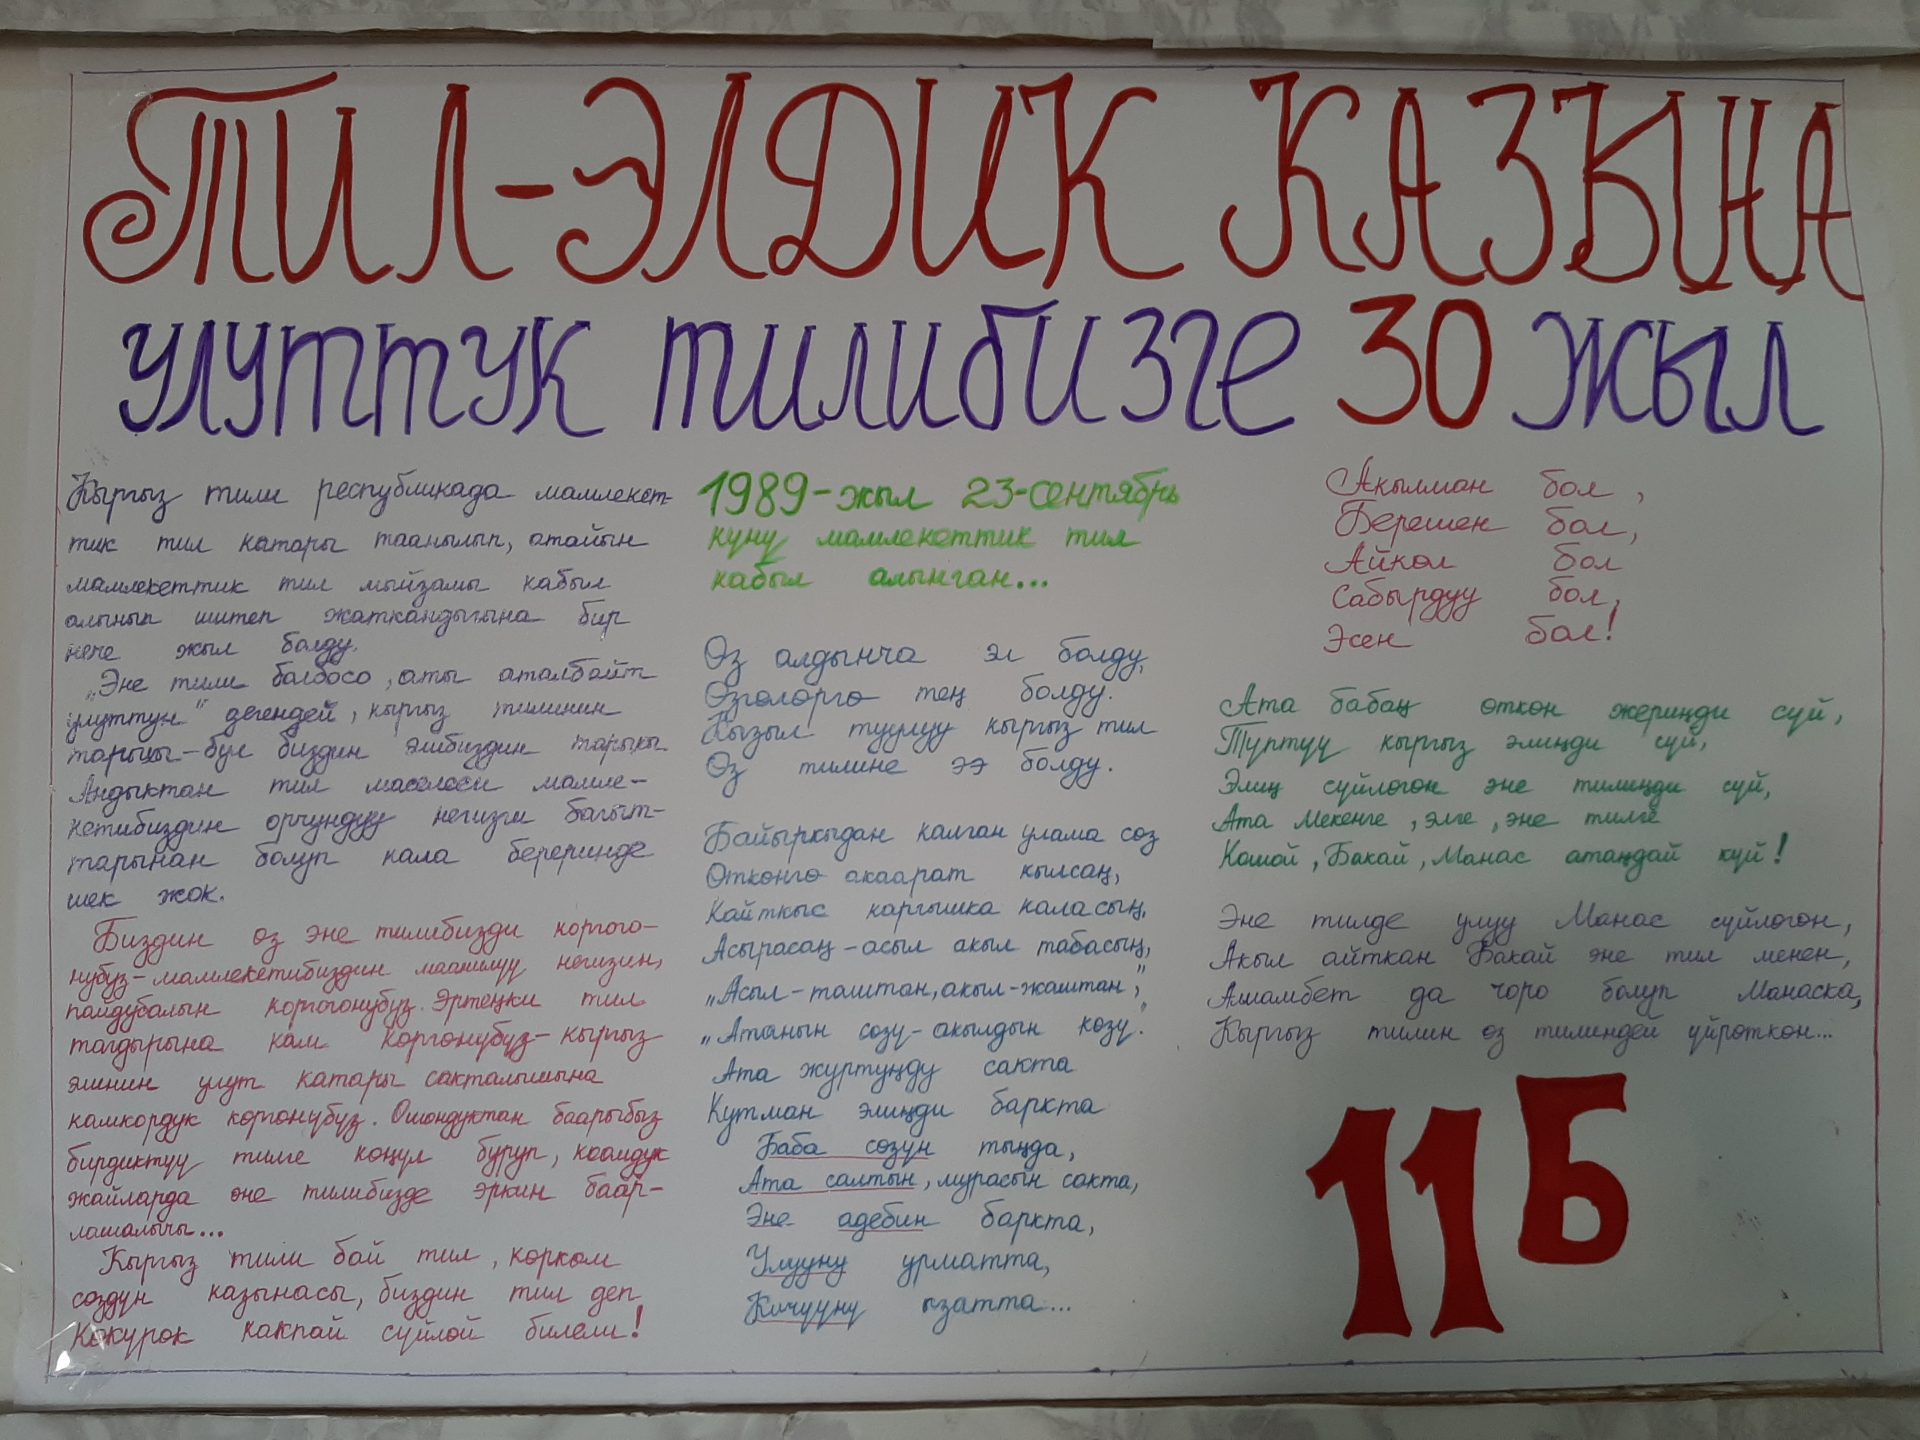 ТИЛ-ЭЛДИК КАЗЫНА
УЛУТТУК ТИЛИБИЗГЕ 30 ЖЫЛ
Кыргыз тили республикада мамлекет-
тик тил катары таанылып, атайын
мамлекеттик тил мыйзамы кабыл
алынып иштеп жаткандыгына бир
нече жыл болду.
„Эне тили болбосо, аты аталбайт
улуттун" дегендей, кыргыз тилинин
тарыхы-бул биздин элибиздин тарыхы.
Андыктан тил маселеси мамле-
кетибиздин орчундуу негизги багыт-
тарынан болуп кала береринде
шек жок.
Биздин өз эне тилибизди коргого-
нубуз-мамлекетибиздин маанилүү негизин,
пайдубалын коргогонубуз. Эртеңки тил
тагдырына кам көргөнүбүз-кыргыз
элинин улут катары сакталышына
камкордук көргөнүбүз. Ошондуктан баарыбыз
бирдиктүү тилге көңүл буруп, коомдук
жайларда эне тилибизде эркин баар-
лашалычы...
Кыргыз тили бай тил, көркөм
сөздүн казынасы, биздин тил деп
Көкүрөк какпай сүйлөй билели!
1989-жыл 23-сентябрь
күнү мамлекеттик тил
кабыл алынган...
Өз алдынча эл болду,
Өзгөлөргө тең болду.
Кызыл туулуу кыргыз тил
Өз тилине ээ болду.
Байыркыдан калган улама сөз
Өткөнгө акаарат кылсаң,
Кайткыс каргышка каласың,
Асырасаң-асыл акыл табасың,
„Асыл-таштан, акыл-жаштан",
„Атанын сөзү-акылдын көзү."
Ата журтуңду сакта
Кутман элиңди баркта
Баба сөзүн тыңда,
Ата салтын, мурасын сакта,
Эне адебин баркта,
Улууну урматта,
Кичүүнү ызатта...
Акылман бол,
Берешен бол,
Айкөл бол
Сабырдуу бол,
Эсен бол!
Ата бабаң өткөн жериңди сүй,
Түптүү кыргыз элиңди сүй,
Элиң сүйлөгөн эне тилиңди сүй,
Ата Мекенге, элге, эне тилге
Кошой, Бакай, Манас атаңдай күй!
Эне тилде улуу Манас сүйлөгөн,
Акыл айткан Бакай эне тил менен,
Алмамбет да чоро болуп Манаска,
Кыргыз тилин өз тилиндей үйрөткөн...
11Б